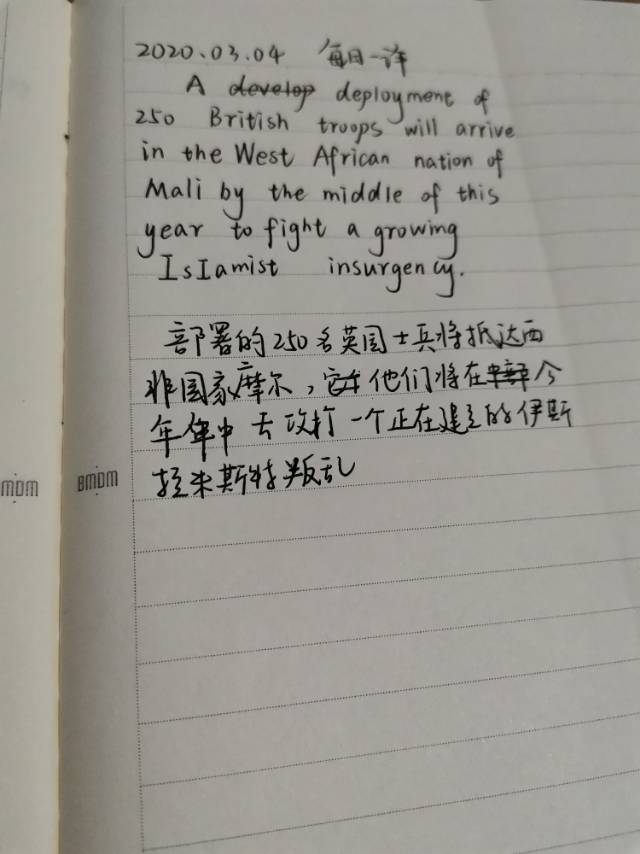 2020.03.04 每日一译
A develop deployment of
250 British troops will arrive
in the West African nation of
Mali by the middle of this
year to fight a growing
IsIamist insurgency.
部署的250名英国士兵将抵达西
非国家摩尔,他们将在今
年年中去攻打一个正在建立的伊斯
拉米斯特叛乱
MDM
BMDM